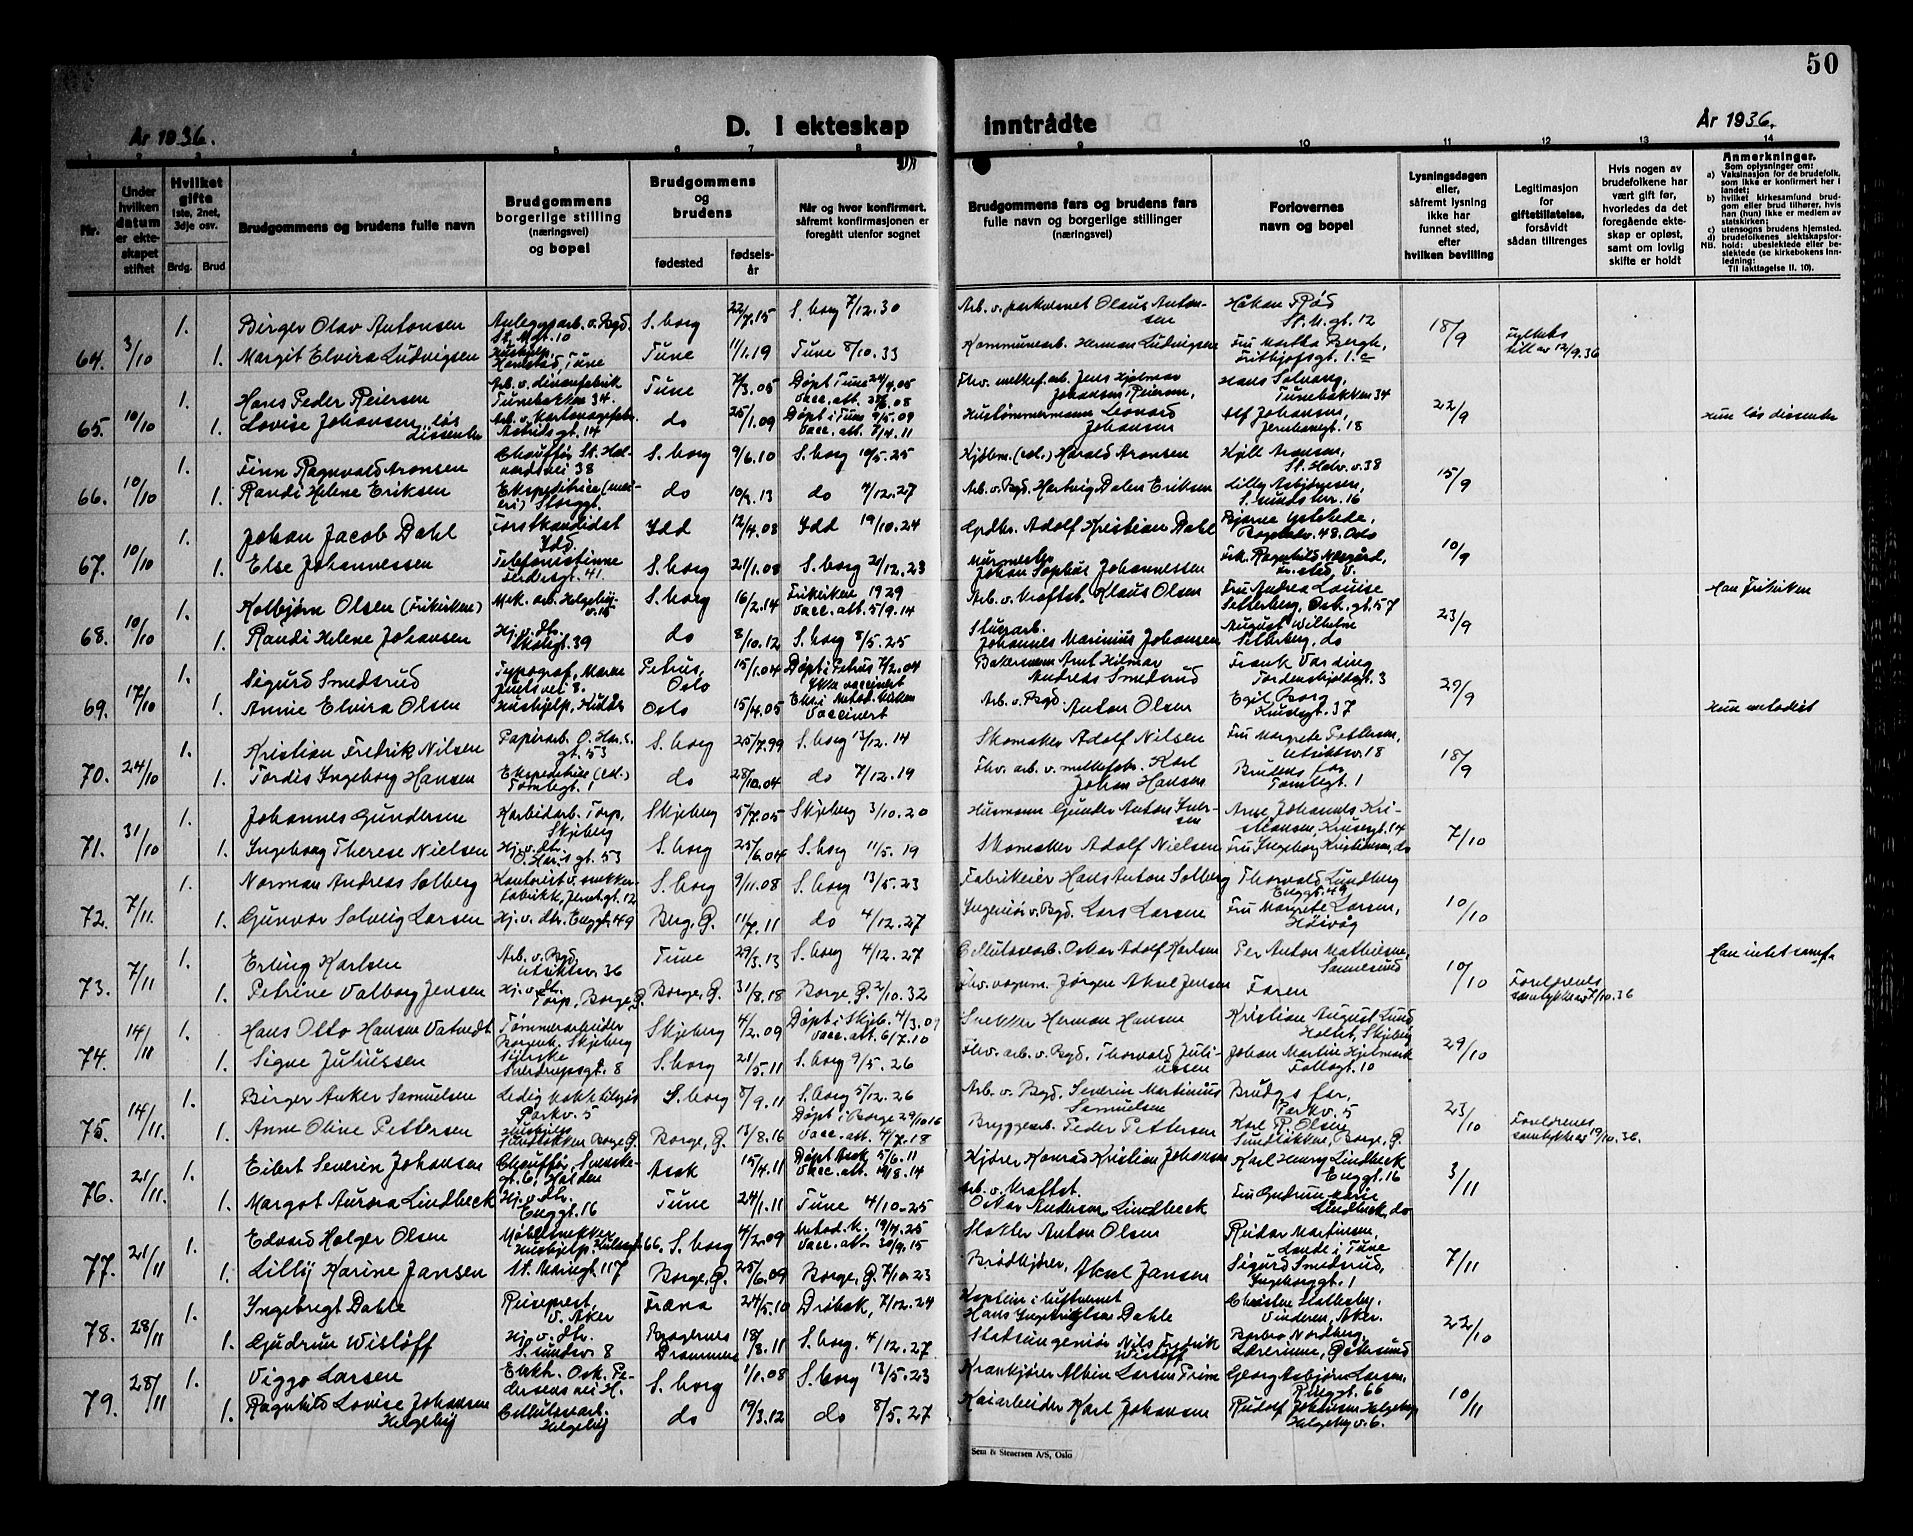 50
År 1936.
D. I ekteskap inntrådte
År 1936.
1 2 3 4 5 6 7 8 9 10 11 12 13 14
Nr.
Under hvilken datum er ekteskapet stiftet
Hvilket gifte
1ste, 2net, 3dje osv.
Brdg. Brud
Brudgommens og brudens fulle navn
Brudgommens borgerlige stilling (næringsvei) og bopel
Brudgommens og brudens
fødested
fødselsår
Når og hvor konfirmert, såfremt konfirmasjonen er foregått utenfor sognet
Brudgommens fars og brudens fars fulle navn og borgerlige stillinger (næringsvei)
Forlovernes navn og bopel
Lysningsdagen eller, såfremt lysning ikke har funnet sted, efter hvilken bevilling
Legitimasjon for giftetillatelse, forsåvidt sådan tiltrenges
Hvis nogen av brudefolkene har vært gift før, hvorledes da det foregående ekteskap er opløst, samt om lovlig skifte er holdt
Anmerkninger.
Som oplysninger om:
a) Vaksinasjon for de brudefolk, som ikke er konfirmert her i landet;
b) hvilket kirkesamfund brudgom eller brud tilhører, hvis han (hun) ikke er medlem av statskirken;
c) utensogns brudens hjemsted.
d) brudefolkenes slektskapsforhold: ubeslektede eller beslektede (se kirkebokens innledning:
Til iakttagelse II. 10).
64. 3/10 1. Birger Olav Antonsen S.borg 22/7.15 S.borg 7/12.30 Arb. v. parkvesenet Olaus Antonsen Håkan Rød St. M. gt. 12 18/9
1. Margit Elvira Ludvigsen Tune 11/1.19 Tune 8/10.33 Kommunearb. Herman Ludvigsen Fru Martha Bergh, Frithjofsgt. 1 c Fylkets till av 12/9.36
65. 10/10 1. Hans Peder Reiersen Tunebakken 34. Tune 7/3.05 Hans Solvang, Tunebakken 34 22/9
1. Lovise Johansen, løs dissenter Astridsgt. 14 do 25/1.09 Døpt i Tune 9/5.09 Hustømmermann Leonard Johansen Alf Johansen, Jernbanegt. 18 Hun løs dissenter
66. 10/10 1. Finn Ragnvald Aronsen Chauffør St. Halvardsvei 38 S.borg 9/6.10 S.borg 10/5.25 Harald Aronsen Kjell Aronsen, St. Halv. v. 38 15/9
1. Randi Helene Eriksen Storgt. do 10/2.13 do 4/12.27 Arb. v. Bgd. Hartvig Dalen Eriksen Lilly Asbjørnsen,
67. 10/10 1. Johan Jacob Dahl Forstkandidat Idd Idd 12/4.08 Idd 19/10.24 Adolf Kristian Dahl 10/9
1. Else Johannessen Telefonistinne S.borg 21/1.08 S.borg 21/12.23 Murmester Johan Sophus Johannessen
68. 10/10 1. Kolbjørn Olsen (Frikirken) Mek. arb. S.borg 16/2.14 Frikirken 1929 Vacc. att. 5/9.14 Arb. v. Kraftst. Klaus Olsen Fru Andrea Louise Setterberg, Ost. gt. 57 23/9 Han Frikirken
1. Randi Helene Johansen Hj. v. do. 39 do 8/10.12 S.borg 8/5.25 Johannes Marinius Johansen August Wilhelm Setterberg, do
69. 17/10 1. Sigurd Smedsrud Typograf, Petrus, Oslo 15/1.04 Døpt i Petrus 7/2.04 Ikke vaccinert Arnt Hilmar Andreas Smedsrud Frank Varding Tordenskjoldsgt. 3 29/9
1. Annie Elvira Olsen Hushjelp, Oslo 15/4.05 Vaccinert Arb. v. Bgd. Anton Olsen Egil Borg 37 Hun metodist
70. 24/10 1. Kristian Fredrik Nilsen Papirarb. O. Har. s. gt. 53 S.borg 25/7.99 S.borg 13/12.14 Skomaker Adolf Nilsen Fru Margrete Pettersen, Utsiktsv. 18 18/9
1. Tordis Ingeborg Hansen Ekspeditrise Tomtegt. 1 do 28/10.04 do 7/12.19 Karl Johan Hansen Brudens far Tomtegt. 1
71. 31/10 1. Johannes Gundersen Karbidarb. Torp, Skjeberg Skjeberg 5/7.05 Skjeberg 3/10.20 Husmann Gunder Anton Iversen Arne Johannes Kristiansen, 7/10
1. Ingeborg Therese Nielsen Hj. v. do. O. Har. s gt. 53 S.borg 25/6.04 S.borg 11/5.19 Skomaker Adolf Nielsen Fru Ingeborg Kristiansen, do
72. 7/11. 1. Norman Andreas Solberg Kontorist v. snekkerfabrikk, S.borg 9/11.08 S.borg 13/5.23 Fabrikeier Hans Anton Solberg Thorvald Lundberg Enggt. 49, 10/10
1. Gunvor Solveig Larsen Hj. v. do. Enggt. 49 Berg, Ø. 11/7.11 do 4/12.27 Ingeniør v. Bgd. Lars Larsen Fru Margrete Larsen, Høivåg
73. 7/11 1. Erling Karlsen Arb. v. Bgd. Utsiktsv. 36 Tune 29/3.13 S.borg 4/12.27 Cellulosearb. Oskar Adolf Karlsen Per Anton Mathiesen, Sannesund 10/10 Han intet samf.
1. Petrine Valborg Jensen Torp, Borge, Ø. Borge, Ø. 31/8.18 Borge, Ø. 2/10.32 Jørgen Aksel Jensen Faren Foreldrenes samtykke av 7/10.36
74. 14/11 1. Hans Otto Hansen Vatvedt Tømmerarbeider Skjeberg Skjeberg 4/2.09 Døpt i Skjeb. 4/3.09 Vacc. att. 6/7.10 Snekker Herman Hansen Kristian August Lund Holtet, Skjeberg 29/10
1. Signe Juliussen Syerske Sverdrupsgt. 8 S.borg 21/5.11 S.borg 9/5.26 Fhv. arb. v. Bgd. Thorvald Juliussen Johan Martin Hjelmark Follogt. 10
75. 14/11. 1. Birger Anker Samuelsen Parkv. 5 S.borg 8/9.11 S.borg 5/12.26 Arb. v. Bgd. Severin Martinius Samuelsen Brudgs far, Parkv. 5 23/10
1. Anne Oline Pettersen Sundløkken Borge, Ø. Borge, Ø. 13/8.16 Døpt i Borge 29/10 16 Vacc. att. 4/7.18 Bryggearb. Peder Pettersen Karl R. Olsen Sundløkken, Borge, Ø. Foreldrenes samtykke av 19/10.36.
76. 21/11. 1. Eilert Severin Johansen Chauffør, Svenskegt. 6, Halden Asak 15/4.11 Døpt Asak 5/6.11 Vacc. att. 19/8.14 Kjører Konrad Kristian Johansen Karl Henry Lindbeck Enggt. 16 3/11
1. Margot Aurora Lindbeck Hj. v. do. Enggt. 16 Tune 24/1.11 Tune 4/10-25 Arb. v. Kraftst. Oskar Andersen Lindbeck Fru Gudrun Marie Lindbeck, do
77. 21/11 1. Edvard Holger Olsen Møbelsnekker 66. S.borg 4/2.09 Metod. k. 19/4.25 Vacc. att. 30/9.15 Anton Olsen Reidar Martinsen, Lande i Tune 7/11
1. Lilly Karine Jansen Hushjelp St. Mariegt. 117 Borge, Ø. 25/6.09 Borge, Ø. 7/10.23 Brødkjører, Aksel Jansen Sigurd Smedsrud, Ingeborggt. 1
78. 28/11 1. Ingebrigt Dahle V. Aker Fræna 24/5.10 Drøbak, 7/12.24 Kaptein i luftvernet Hans Ingebrigtsen Dahle Vinderen, Aker. 22/10
1. Gudrun Wisløff Hj. v. do. S.sundsv. 8 Bragernes Drammen 18/8.11 S.borg. 4/12.27 Stadsingeniør Nils Fredrik Wisløff Barbro Nordberg, Lærerinne,
79. 28/11 1. Viggo Larsen Elekt. Osk. Pedersens vei H. S.borg 1/1.08 S.borg 13/5.23 Krankjører Albin Larsen Georg Asbjørn Larsen, Ringgt. 66 10/11
1. Ragnhild Lovise Johansen Helgeby Cellulosearb. Helgeby do 19/3.12 do 8/5.27 Kaiarbeider Karl Johansen Rudolf Johansen Helgeby Helgeby v. 6.
Sem & Stenersen A/S, Oslo